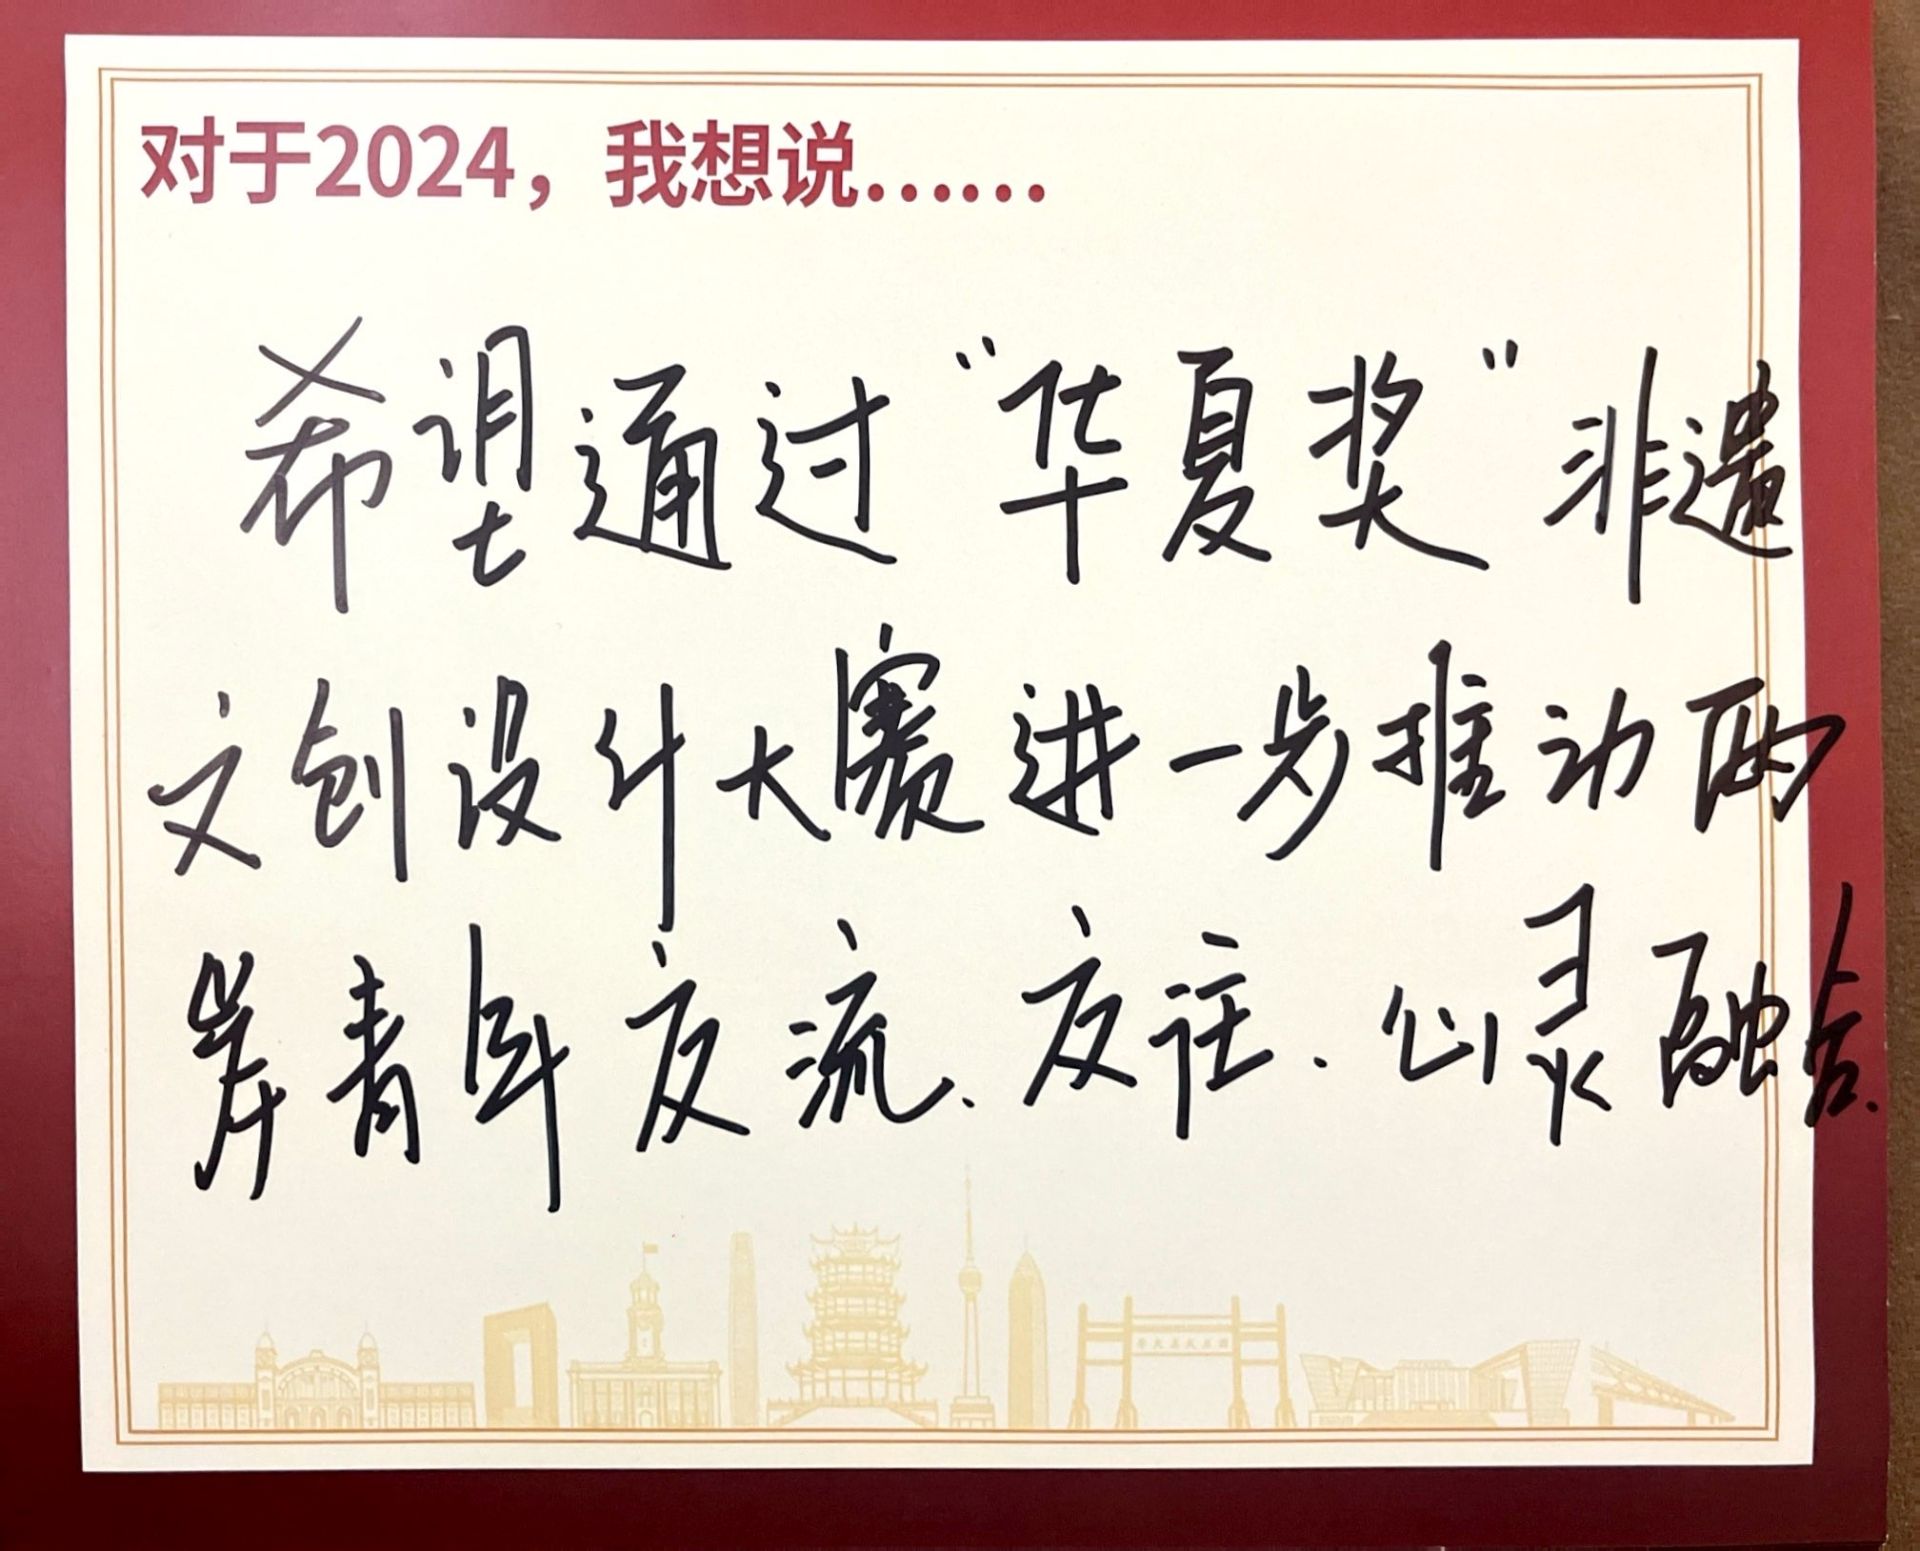 对于2024，我想说……
希望通过“华夏奖”非遗
文创设计大赛进一步推动两
岸青年交流、交往、心灵融合.